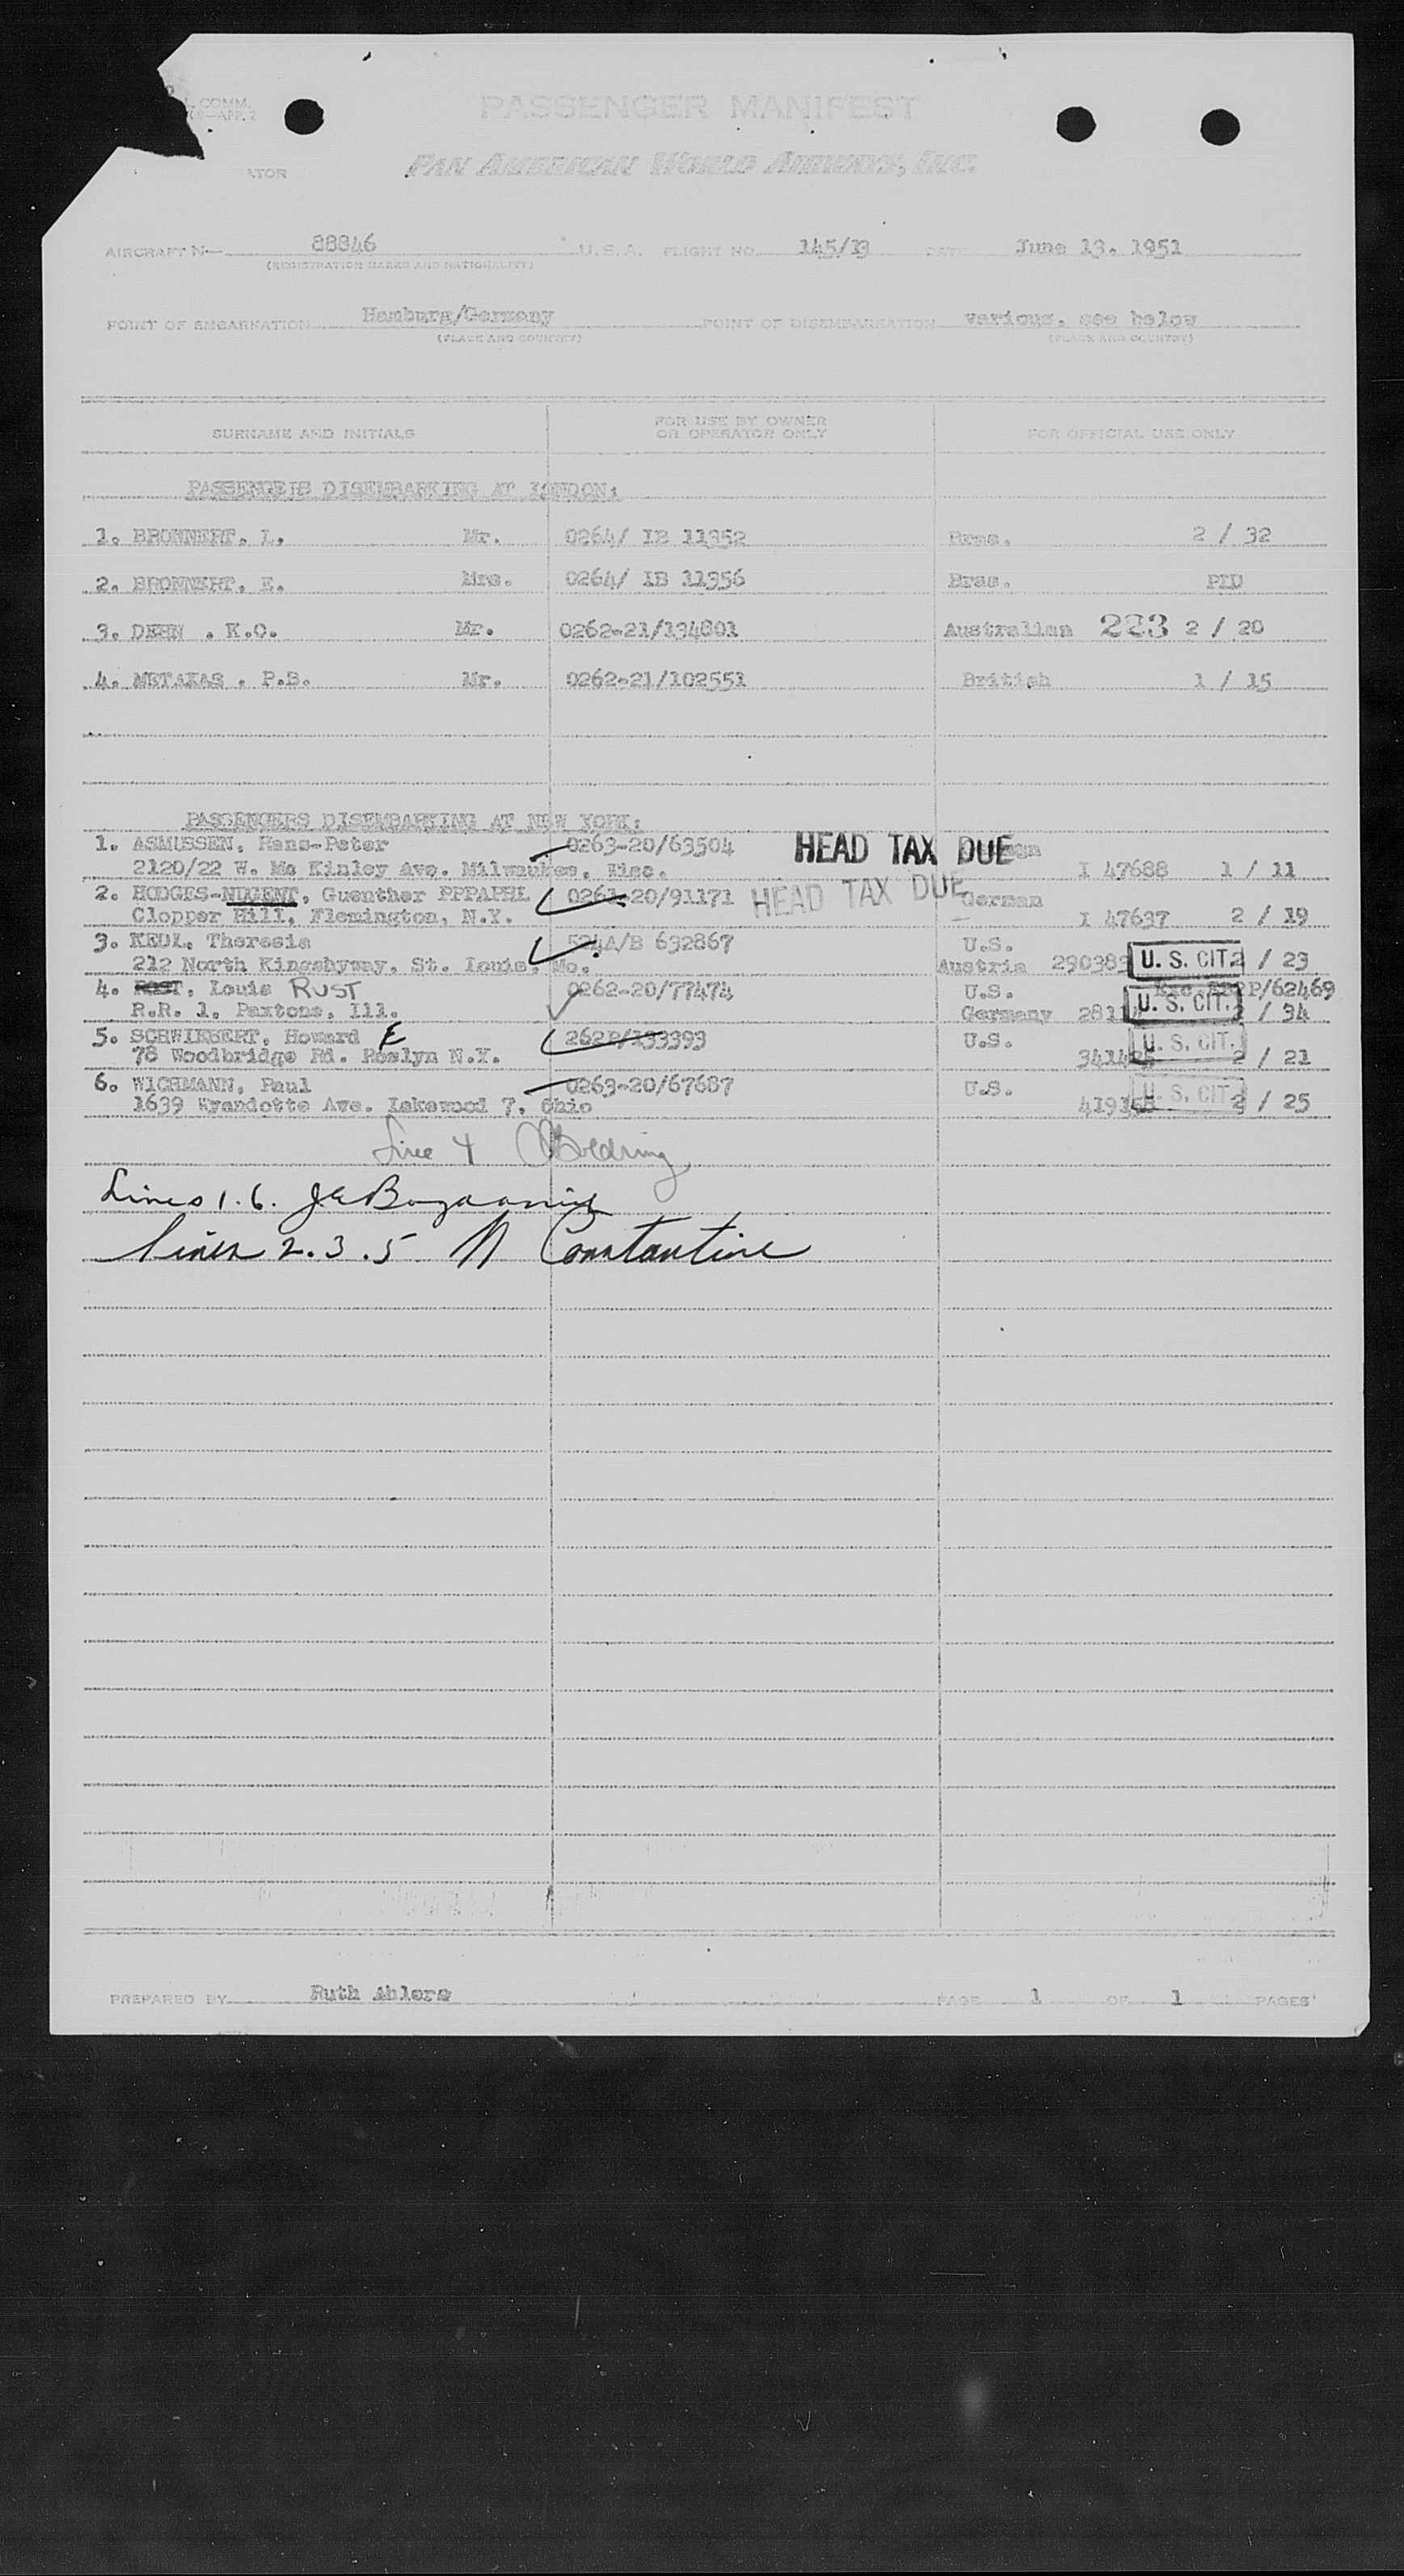 COMM.
PASSENGER MANIFEST
PAN AMERICAN WORLD AIRWAYS, INC.
AIRCRAFT N— 88846 U.S.A. FLIGHT NO. 145/13 DATE June 13, 1951
(REGISTRATION MARKS AND NATIONALITY)
POINT OF EMBARKATION Hamburg/Germany POINT OF DISEMBARKATION various, see below
(PLACE AND COUNTRY) (PLACE AND COUNTRY)
SURNAME AND INITIALS FOR USE BY OWNER OR OPERATOR ONLY FOR OFFICIAL USE ONLY
PASSENGERS DISEMBARKING AT LONDON:
1. BRONNERT, L. Mr. 0264/ IB 11352 Bras. 2 / 32
2. BRONNERT, E. Mrs. 0264/ IB 11356 Bras. PID
3. DEHN , K.O. Mr. 0262-21/134801 Australian 223 2 / 20
4. METAXAS , P.B. Mr. 0262-21/102551 British 1 / 15
PASSENGERS DISEMBARKING AT NEW YORK:
1. ASMUSSEN, Hans-Peter 0263-20/63504 HEAD TAX DUE
2120/22 W. Mc Kinley Ave. Milwaukee, Wisc. I 47688 1 / 11
2. HODGES-NUGENT, Guenther PPPAPHL 0261-20/91171 HEAD TAX DUE German
Clopper Hill, Flemington, N.Y. I 47637 2 / 19
3. KEDL, Theresia 524A/B 692867 U.S.
212 North Kingshyway, St. Louis, Mo. Austria U. S. CIT. 2 / 23
4. Louis RUST 0262-20/77474 U.S. P/62469
R.R. 1, Paxtons, Ill. Germany U. S. CIT. / 34
5. SCHWIEBERT, Howard E 262P/133393 U.S.
78 Woodbridge Rd. Roslyn N.Y. U. S. CIT. 2 / 21
6. WICHMANN, Paul 0263-20/67687 U.S.
1639 Wyandotte Ave. Lakewood 7, Ohio U. S. CIT. 2 / 25
Line 4
Lines 1.6.
Lines 2.3.5 N Constantine
PREPARED BY Ruth Ahlers PAGE 1 OF 1 PAGES